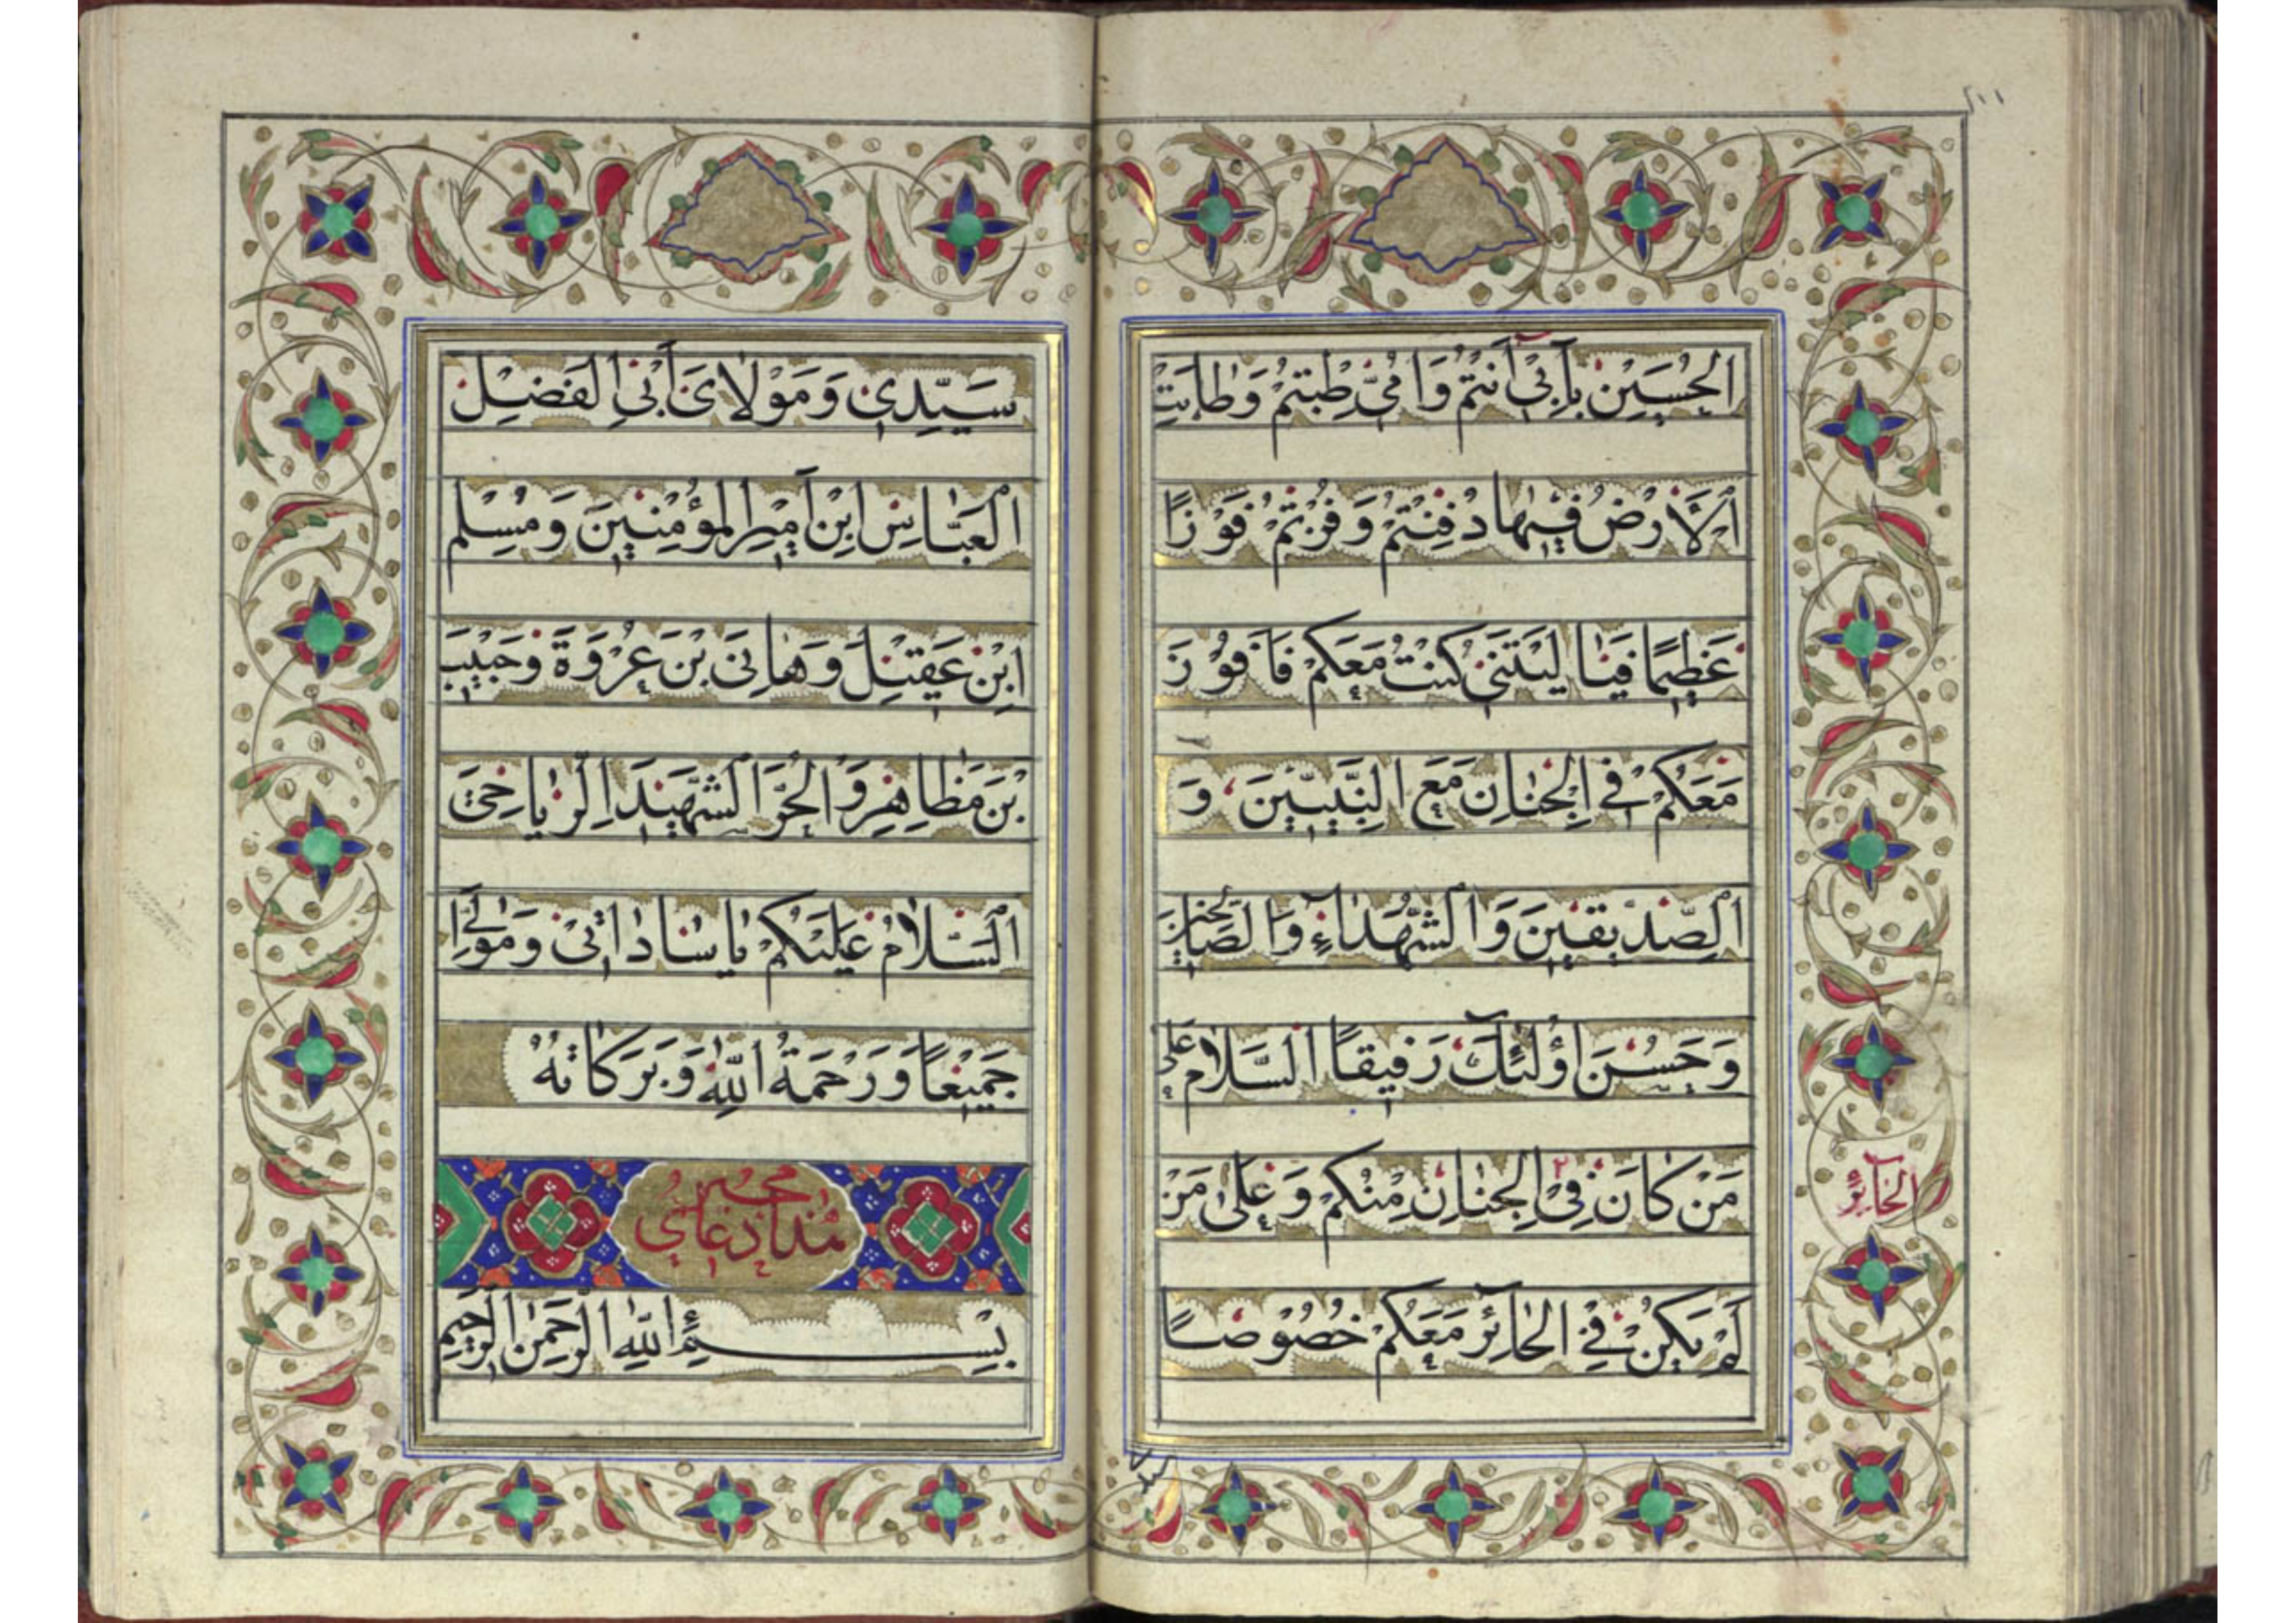 الحُسَيْنِ بِاَبِي اَنْتُمْ وَاُمّي طِبْتُمْ وَطابَتِ
الْاَرْضُ فيها دُفِنْتُمْ وَفُزْتُمْ فَوْزًا
عَظيمًا فَيا لَيْتَني كُنْتُ مَعَكُمْ فَاَفُوْزَ
مَعَكُمْ في الجِنانِ مَعَ النَّبِيّينَ وَ
الصِّدّيقينَ وَالشُّهَداءِ وَالصّالِحينَ
وَحَسُنَ اُولئِكَ رَفيقًا السَّلامُ عَلى
مَنْ كانَ فِي الجِنانِ مِنْكُمْ وَعَلى مَنْ
الحائِرِ
لَمْ يَكُنْ فِي الحائِرِ مَعَكُمْ خُصُوْصًا
سَيِّدي وَمَوْلايَ اَبِي الفَضْلِ
العَبّاسِ ابْنِ اَميرِ المُؤْمِنينَ وَمُسْلِمِ
ابْنِ عَقيلٍ وَهانِي بْنِ عُرْوَةَ وَحَبيبِ
بْنِ مَظاهِرٍ وَالحُرِّ الشَّهيدِ الرِّياحِيّ
السَّلامُ عَلَيْكُمْ يا ساداتي وَمَوالِيَّ
جَميعًا وَرَحْمَةُ اللهِ وَبَرَكاتُهُ
دعاي
مجير
بِسْمِ اللهِ الرَّحْمنِ الرَّحيمِ